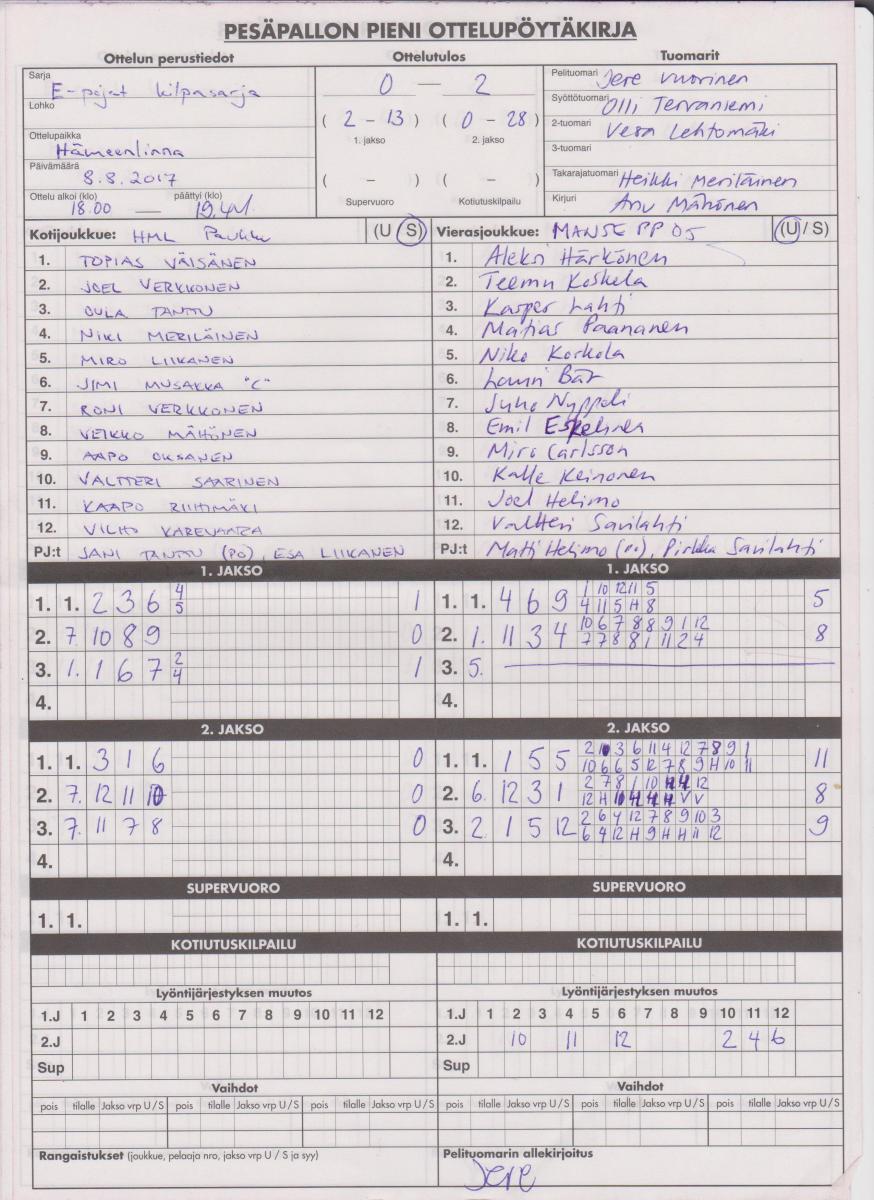 PESÄPALLON PIENI OTTELUPÖYTÄKIRJA
Ottelun perustiedot Ottelutulos Tuomarit
Sarja E-pojat kilpasarja
Lohko
Ottelupaikka Hämeenlinna
Päivämäärä 8.8.2017
Ottelu alkoi (klo) päättyi (klo)
18.00 — 19.41
0 — 2
( 2 - 13 ) ( 0 - 28 )
1. jakso 2. jakso
( - ) ( - )
Supervuoro Kotiutuskilpailu
Pelituomari Jere Vuorinen
Syöttötuomari Olli Tervaniemi
2-tuomari Vesa Lehtomäki
3-tuomari
Takarajatuomari Heikki Meriläinen
Kirjuri Anu Mähönen
Kotijoukkue: HML Pauhu (U / S)
Vierasjoukkue: MANSE PP 05 (U / S)
1. TOPIAS VÄISÄNEN
2. JOEL VERKKONEN
3. OULA TANTTU
4. NIKI MERILÄINEN
5. MIRO LIIKANEN
6. JIMI MUSAKKA "C"
7. RONI VERKKONEN
8. VEIKKO MÄHÖNEN
9. AAPO OKSANEN
10. VALTTERI SAARINEN
11. KAAPO RIIHIMÄKI
12. VILHO KAREVAARA
PJ:t JANI TANTTU (PO), ESA LIIKANEN
1. Aleksi Härkönen
2. Teemu Koskela
3. Kasper Lahti
4. Matias Paananen
5. Niko Korkola
6. Lauri Bär
7. Juho Nyppeli
8. Emil Eskelinen
9. Miro Carlsson
10. Kalle Keinonen
11. Joel Helimo
12. Valtteri Savilahti
PJ:t Matti Helimo (PO), Pirkka Savilahti
1. JAKSO
1. 1. 2 3 6 4 1
5
2. 7. 10 8 9 0
3. 1. 1 6 7 2 1
4
4.
1. JAKSO
1. 1. 4 6 9 1 10 12 11 5 5
4 11 5 H 8
2. 1. 11 3 4 10 6 7 8 8 9 1 12 8
7 7 8 8 1 11 2 4
3. 5.
4.
2. JAKSO
1. 1. 3 1 6 0
2. 7. 12 11 10 0
3. 7. 11 7 8 0
4.
2. JAKSO
1. 1. 1 5 5 2 3 6 11 4 12 7 8 9 1 11
10 6 6 5 12 7 8 9 H 10 11
2. 6. 12 3 1 2 7 8 1 10 12 8
12 H V V
3. 2. 1 5 12 2 6 4 12 7 8 9 10 3 9
6 4 12 H 9 H H 11 12
4.
SUPERVUORO SUPERVUORO
1. 1. 1. 1.
KOTIUTUSKILPAILU KOTIUTUSKILPAILU
Lyöntijärjestyksen muutos Lyöntijärjestyksen muutos
1.J 1 2 3 4 5 6 7 8 9 10 11 12 1.J 1 2 3 4 5 6 7 8 9 10 11 12
2.J 2.J 10 11 12 2 4 6
Sup Sup
Vaihdot Vaihdot
pois tilalle Jakso vrp U / S pois tilalle Jakso vrp U / S pois tilalle Jakso vrp U / S pois tilalle Jakso vrp U / S pois tilalle Jakso vrp U / S pois tilalle Jakso vrp U / S
Rangaistukset (joukkue, pelaaja nro, jakso vrp U / S ja syy) Pelituomarin allekirjoitus
Jere